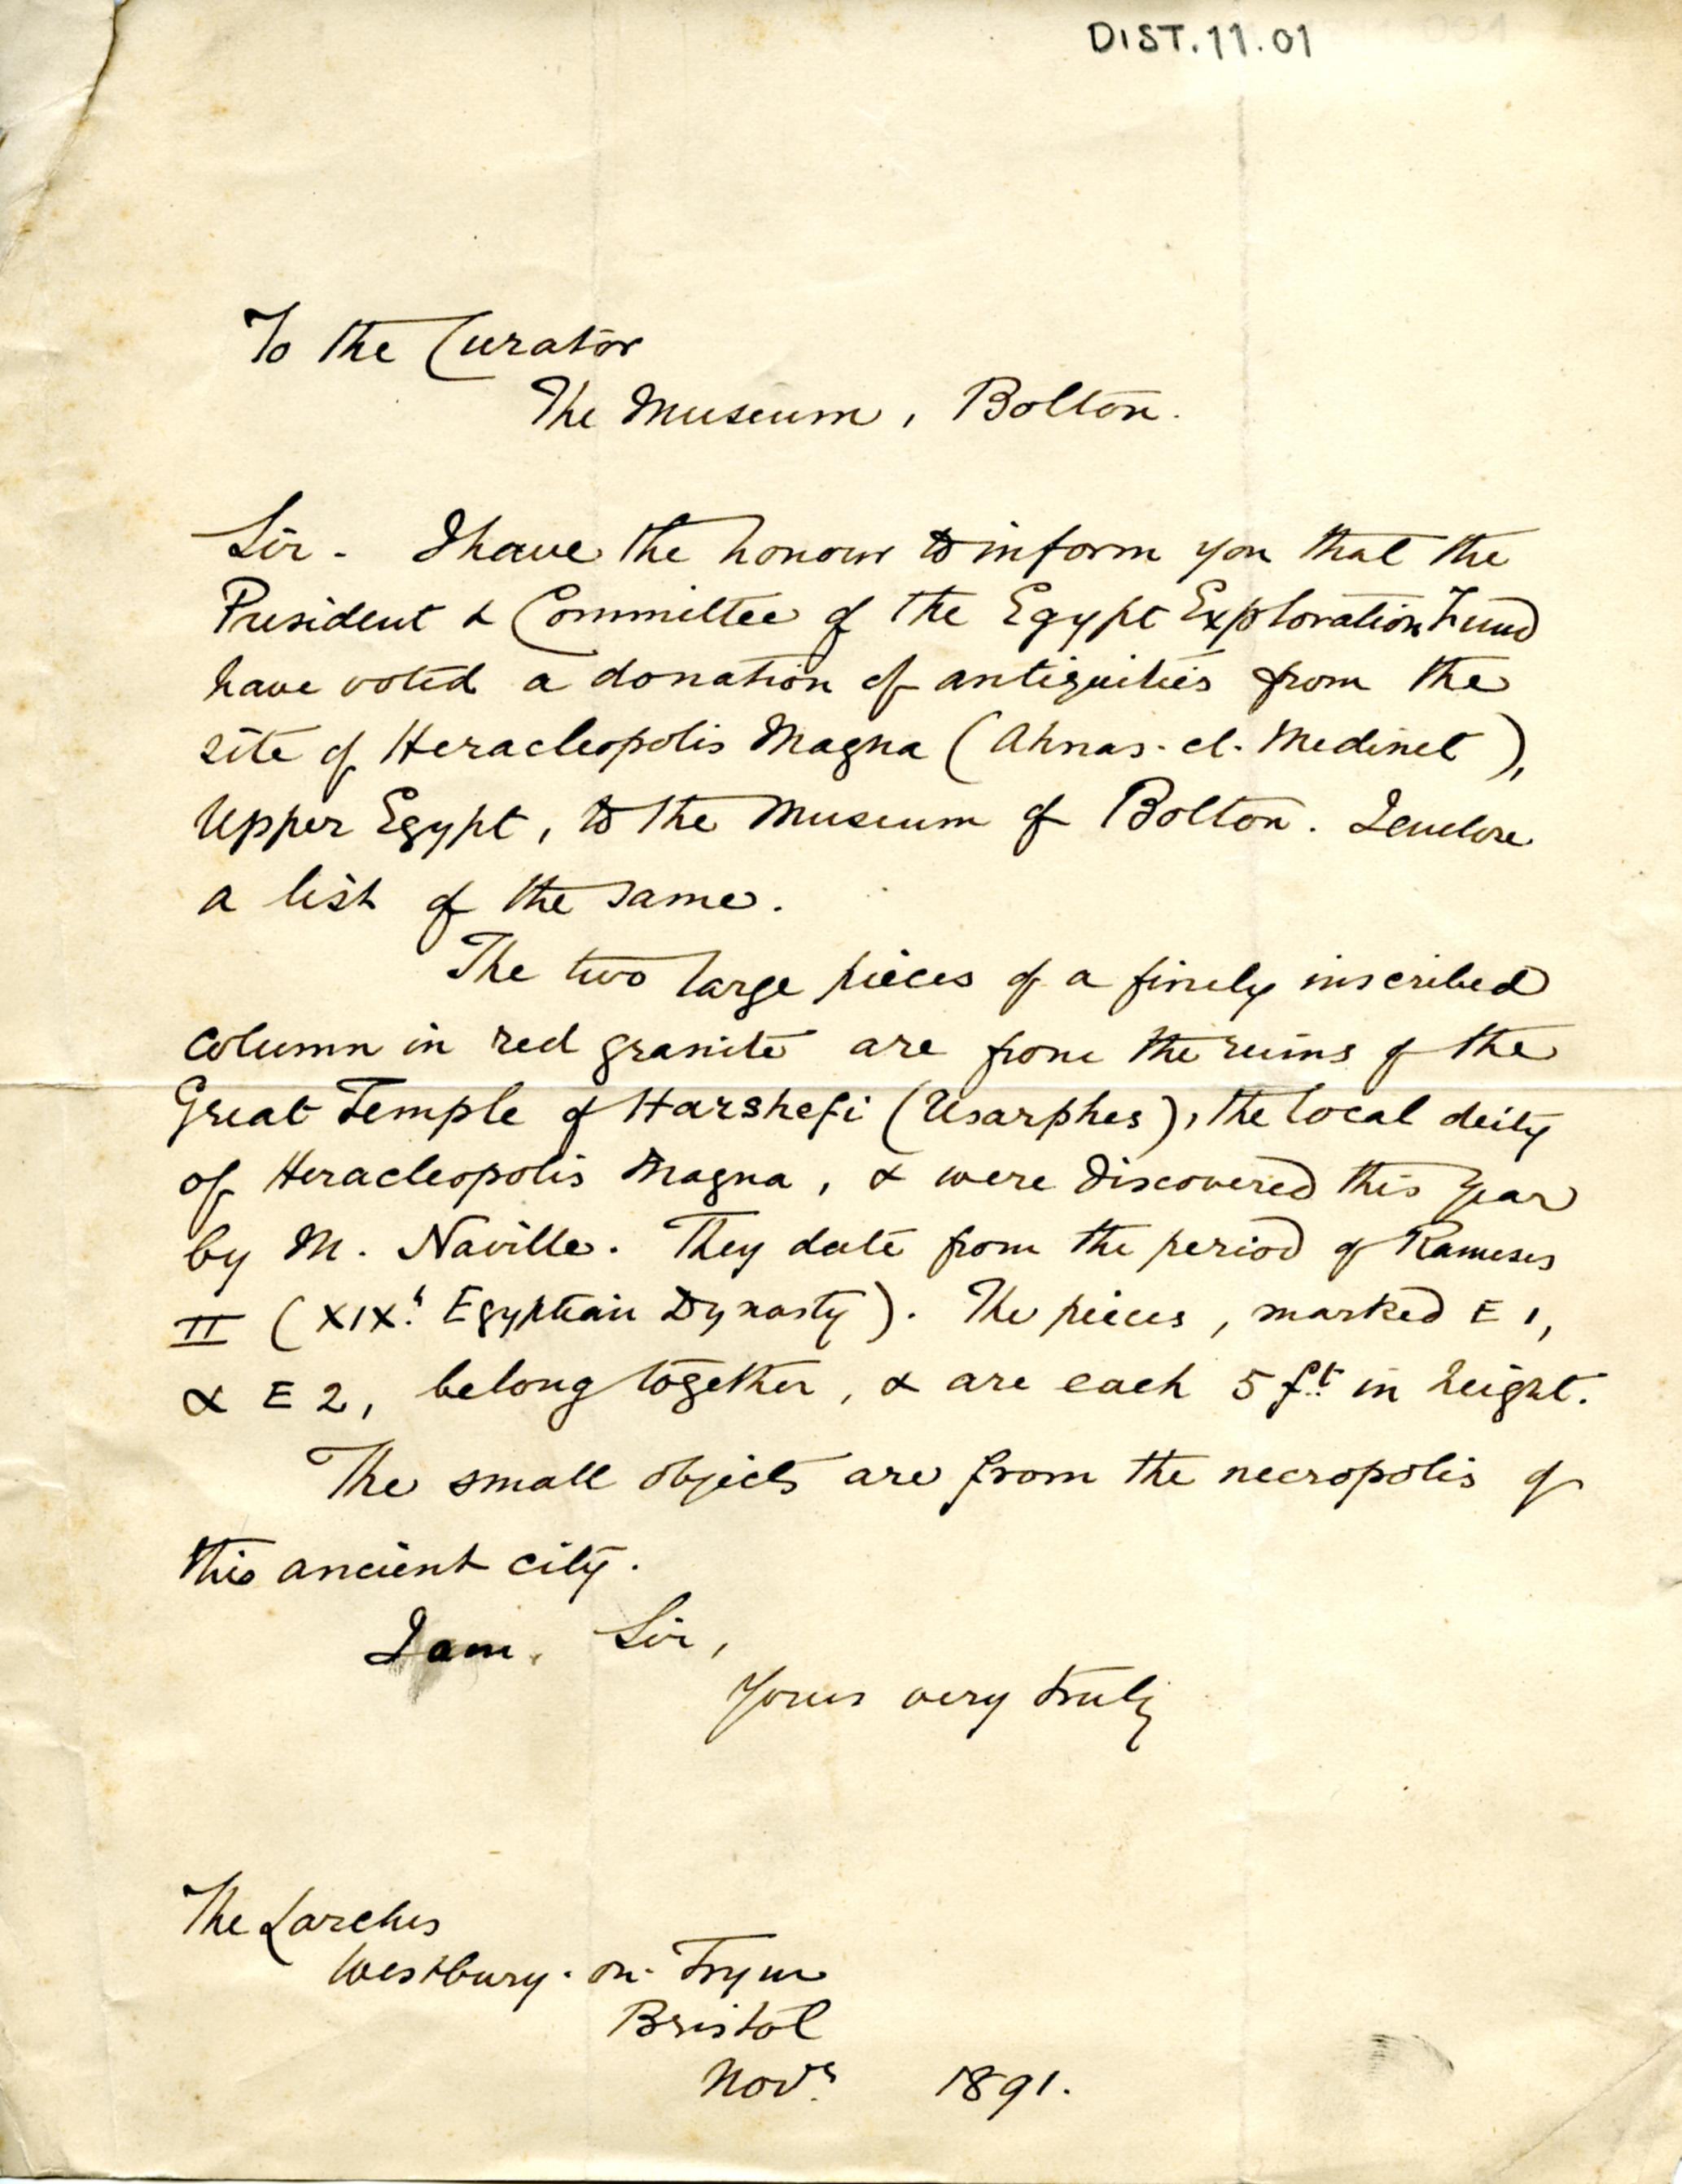 DIST.11.01
To the Curator
The Museum, Bolton.
Sir - I have the honour to inform you that the
President & Committee of the Egypt Exploration Fund
have voted a donation of antiquities from the
site of Heracleopolis Magna (Ahnas-el-Medinet),
Upper Egypt, to the Museum of Bolton. I enclose
a list of the same.
The two large pieces of a finely inscribed
column in red granite are from the ruins of the
Great Temple of Harshefi (Usarphes), the local deity
of Heracleopolis Magna, & were discovered this year
by M. Naville. They date from the period of Rameses
II (XIXth Egyptian Dynasty). The pieces, marked E 1,
& E 2, belong together, & are each 5 ft. in height.
The small objects are from the necropolis of
this ancient city.
I am, Sir,
Yours very truly
The Larches
Westbury-on-Trym
Bristol
Novr. 1891.